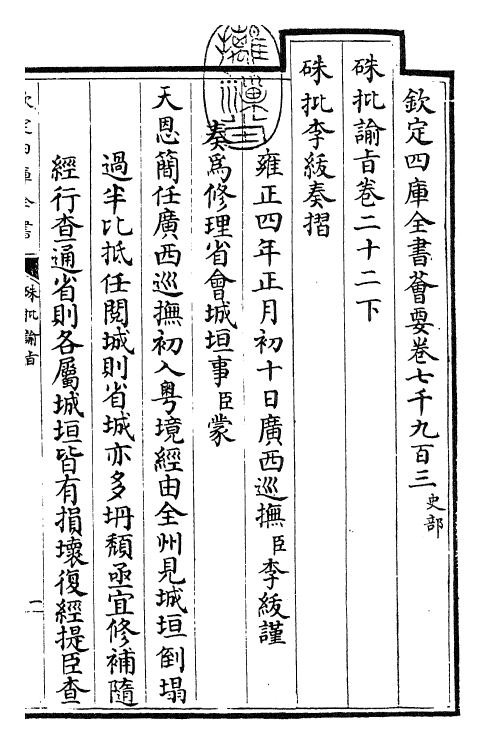 欽定四庫全書薈要卷七千九百三史部
硃批諭旨卷二十二下
硃批李紱奏摺
雍正四年正月初十日廣西巡撫臣李紱謹
奏為修理省會城垣事臣蒙
天恩簡任廣西巡撫初入粵境經由全州見城垣倒塌
過半比抵任閱城則省城亦多坍頹亟宜修補隨
經行查通省則各屬城垣皆有損壞復經提臣查
欽定四庫全書
硃批諭旨